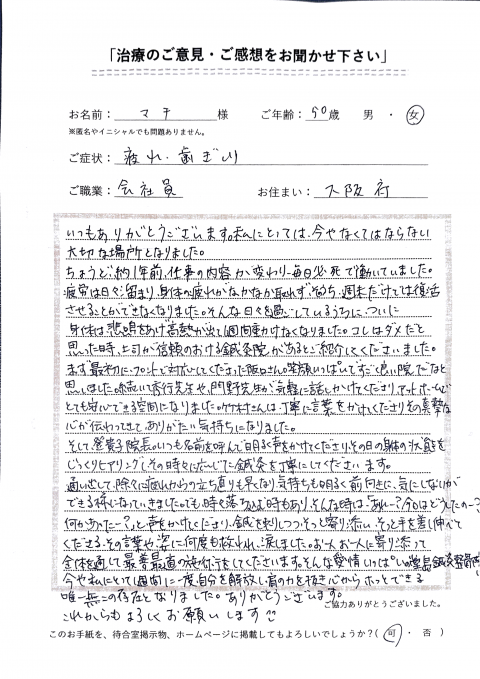 「治療のご意見・ご感想をお聞かせ下さい」
お名前： マチ 様 ご年齢： 50 歳 男 ・ 女
※匿名やイニシャルでも問題ありません。
ご症状： 疲れ・歯ぎしり
ご職業： 会社員 お住まい： 大阪府
いつもありがとうございます。私にとっては、今やなくてはならない
大切な場所となりました。
ちょうど約1年前、仕事の内容が変わり毎日必死で働いていました。
疲労は日々溜まり、身体の疲れがなかなか取れず、週末だけでは復活
させることができなくなりました。そんな日々を過ごしているうちに、ついに
身体は悲鳴をあげ高熱が出て1週間動かけなくなりました。コレはダメだと
思った時、上司が信頼のおける鍼灸院があるとご紹介してくださいました。
まず最初に、フロントで対応してくださった阪口さん。笑顔いっぱいですごく良い院だなと
思いました。続いて秀行先生や、門野先生が気軽に話しかけてくださり、アットホームで
とても安心できる空間になりました。竹村さんは、丁寧に言葉をかけてくださりその真摯な
心が伝わってきてありがたい気持ちになりました。
そして、院長。いつも名前を呼んで明るく声をかけてくださり、その日の身体の状態を
じっくりヒアリングしその時々に応じた鍼灸を丁寧にしてくださいます。
通い出して、除々に疲れからの立ち直りも早くなり、気持ちも明るく前向きに、気にしないが
できる様になっていきました。でも時々落ち込む時もあり、そんな時は、「あれー？今日はどうしたのー？
何かあったー？」と声をかけてくださり、鍼を刺しつつ、そっと寄り添い、そっと手を差し伸べて
くださる。その言葉や姿に何度も救われ、涙しました。お一人お一人に寄り添って
全体を通して最善最適の施術をしてくださいます。そんな愛情いっぱいの堂島鍼灸整骨院
今や私にとって1週間に一度自分を解放し肩の力を抜き心からホッとできる
唯一無二の存在となりました。ありがとうございます。
これからもよろしくお願いします
ご協力ありがとうございました。
このお手紙を、待合室掲示物、ホームページに掲載してもよろしいでしょうか？（ 可 ・ 否 ）